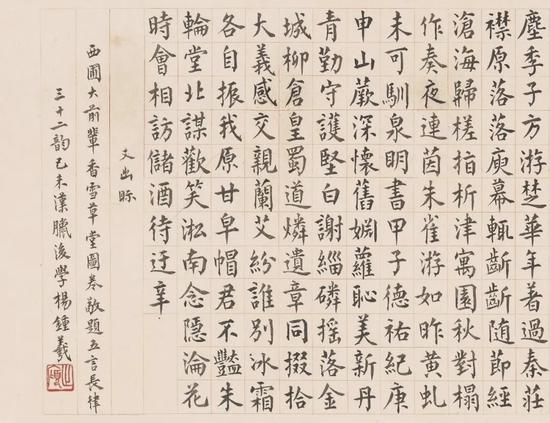 塵季子方游楚華年著過秦莊
襟原落落庾幕輒齗齗隨節經
滄海歸槎指析津寓園秋對榻
作奏夜連茵朱雀游如昨黃虬
未可馴泉明書甲子德祐紀庚
申山蕨深懷舊婣蘿恥美新丹
青勤守護堅白謝緇磷搖落金
城柳倉皇蜀道燐遺章同掇拾
大義感交親蘭艾紛誰別冰霜
各自振我原甘皁帽君不豔朱
輪堂北謀歡笑淞南念隱淪花
時會相訪儲酒待迂辛
文幽眎
西圃大前輩香雪草堂圖卷敬題五言長律
三十二韵己未漢臘後學楊鍾羲